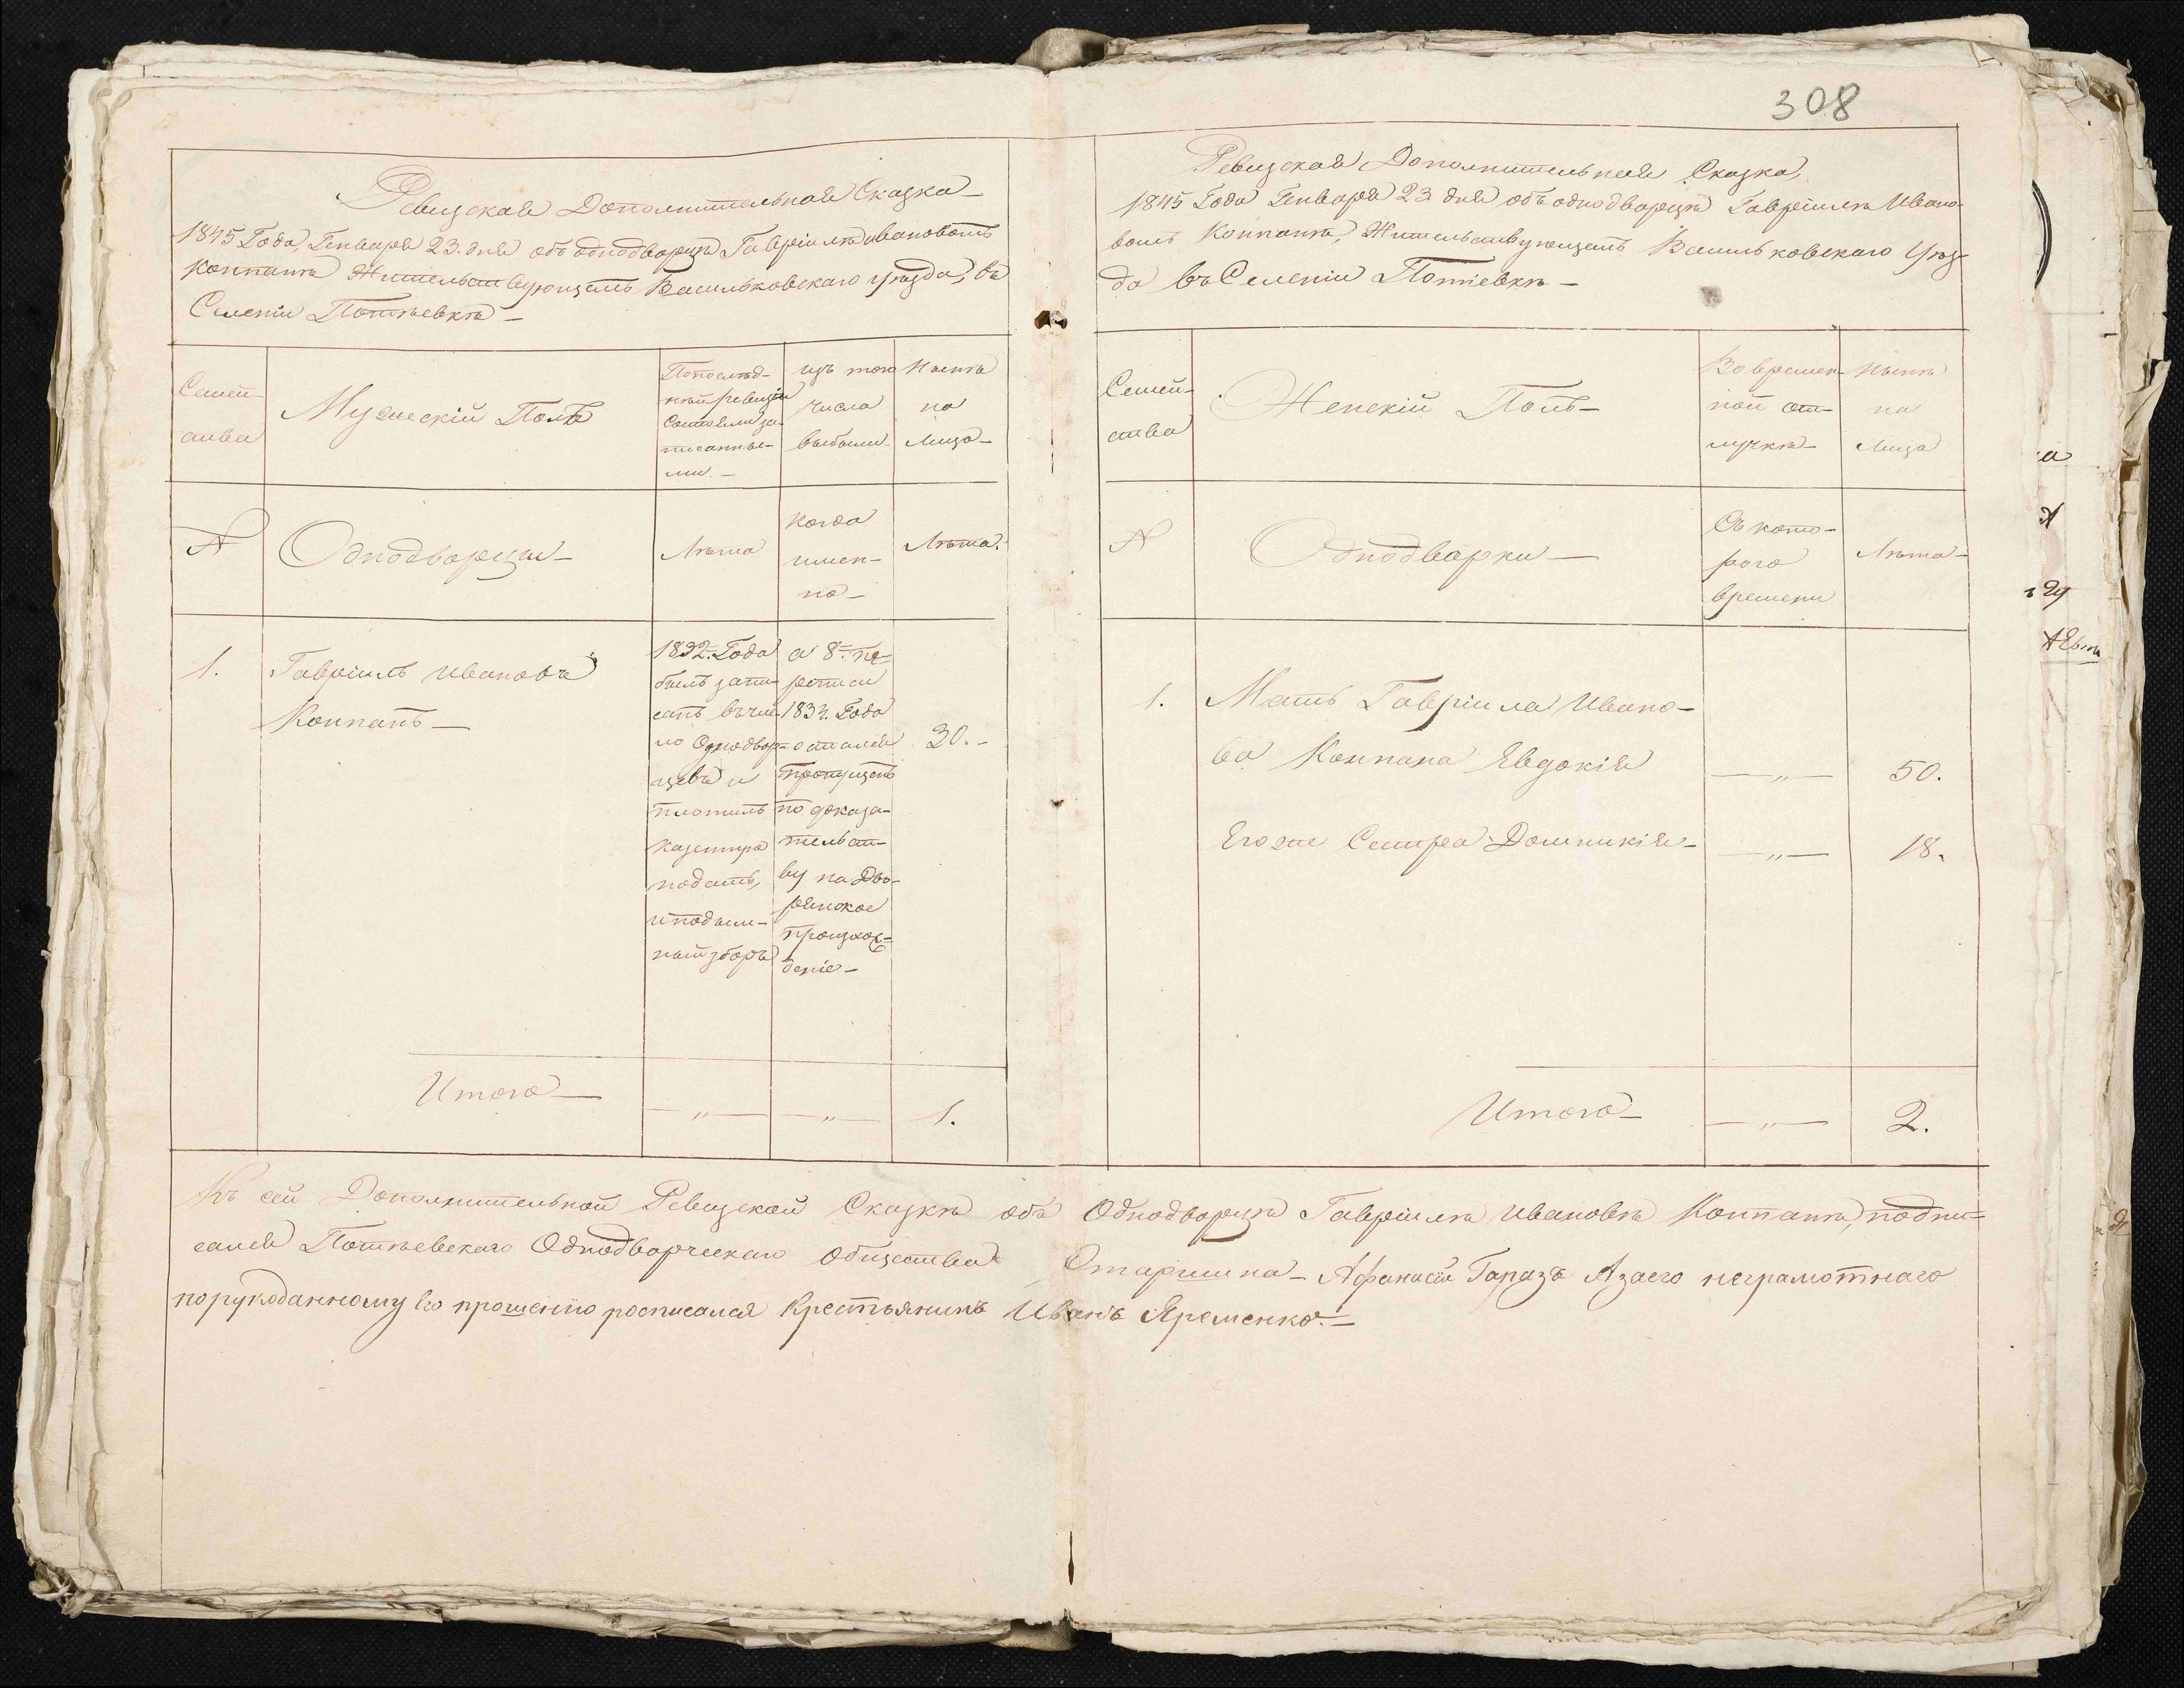 308
Ревизская Дополнительная Сказка
1845 Года, Генваря 23. дня объ однодворцѣ Гавріилѣ Ивановомъ
Коппанѣ Жительствующемъ Васильковскаго уѣзда, въ
Селеніи Потіевкѣ
Семей-
ства
Мужескій Полъ
По послѣд-
ней ревизіи
Состояли за-
писанны-
ми.
изъ того
числа
выбыли
Нынѣ
на
Лицо
№
Однодворцы
Лѣта
когда
имен-
но
Лѣта.
1.
Гавріилъ Ивановъ
Коппанъ
1832. Года
былъ запи-
санъ въ чис-
ло Однодвор-
цевъ и
платилъ
казенную
подать,
и подым-
ный зборъ
а 8й пе-
реписи
1834. Года
остался
пропущенъ
по доказа-
тельст-
ву на Дво-
рянское
происхож-
деніе
30.
Итого — „ — — „ — 1.
Ревизская Дополнительная Сказка,
1845 Года Генваря 23 дня объ однодворцѣ Гавріилѣ Ивано-
вомъ Коппанѣ, Жительствующемъ Васильковскаго Уѣз-
да въ Селеніи Потіевкѣ
Семей-
ства
Женскій Полъ
Во времен-
ной от-
лучкѣ
Нынѣ
на
Лицо
№
Однодварки
Съ кото-
рого
времени
Лѣта
1. Мать Гавріила Ивано-
ва Коппана Евдокія — „ — 50.
Его же Сестра Домникія — „ — 18.
Итого — „ — 2.
Къ сей Дополнительной Ревизской Сказкѣ объ Однодворцѣ Гавріилѣ Ивановѣ Коппанѣ, подпи-
сался Потіевскаго Однодворческаго Общества Старшина Афанасій Гаразъ А заего неграмотнаго
порукоданному Его прошенію росписался Крестьянинъ Иванъ Яременко.